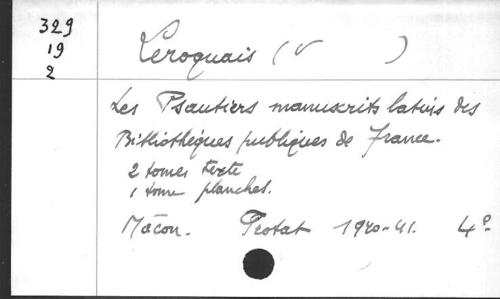 329
19
2
Leroquais (V )
Les Psautiers manuscrits latins des
Bibliothèques publiques de France.
2 tomes texte
1 tome planches.
Mâcon. Protat 1940-41. 4°.